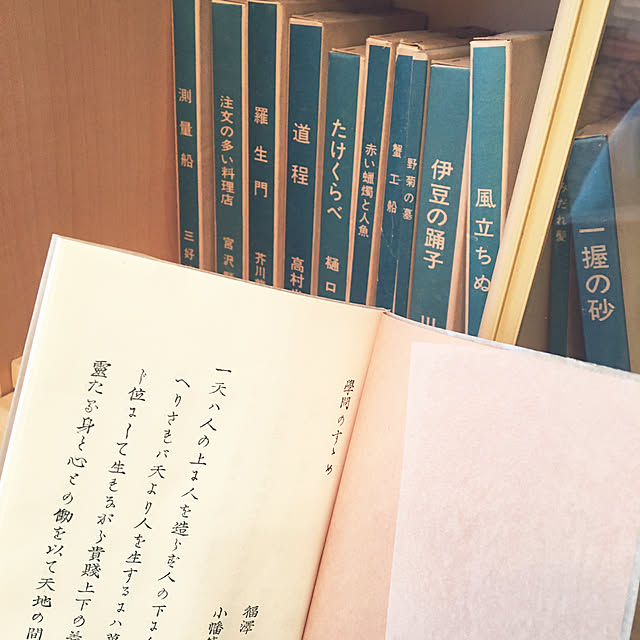 測量船 三好
注文の多い料理店 宮沢
羅生門 芥川
道程 高村
たけくらべ 樋口
赤い蠟燭と人魚
蟹工船
野菊の墓
伊豆の踊子 川
風立ちぬ
だれ髪
一握の砂
學問のすゝめ
福澤
小幡
一天ハ人の上に人を造らず人の下に
へりされバ天より人を生ずるにハ萬
ト位にして生れながら貴賤上下の
靈たる身と心との働を以て天地の間